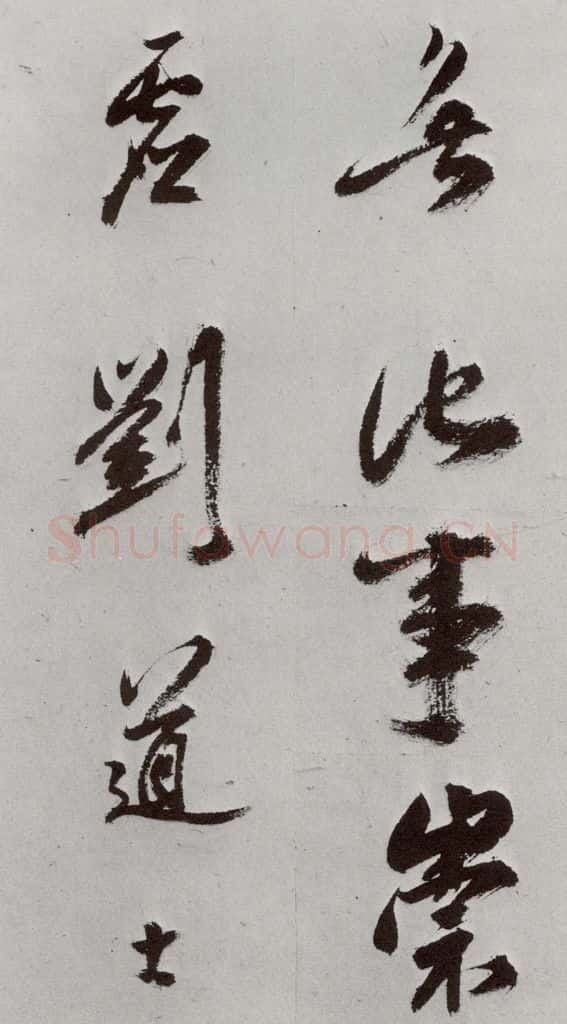 無此事崇
虛劉道士
Shufawang.CN